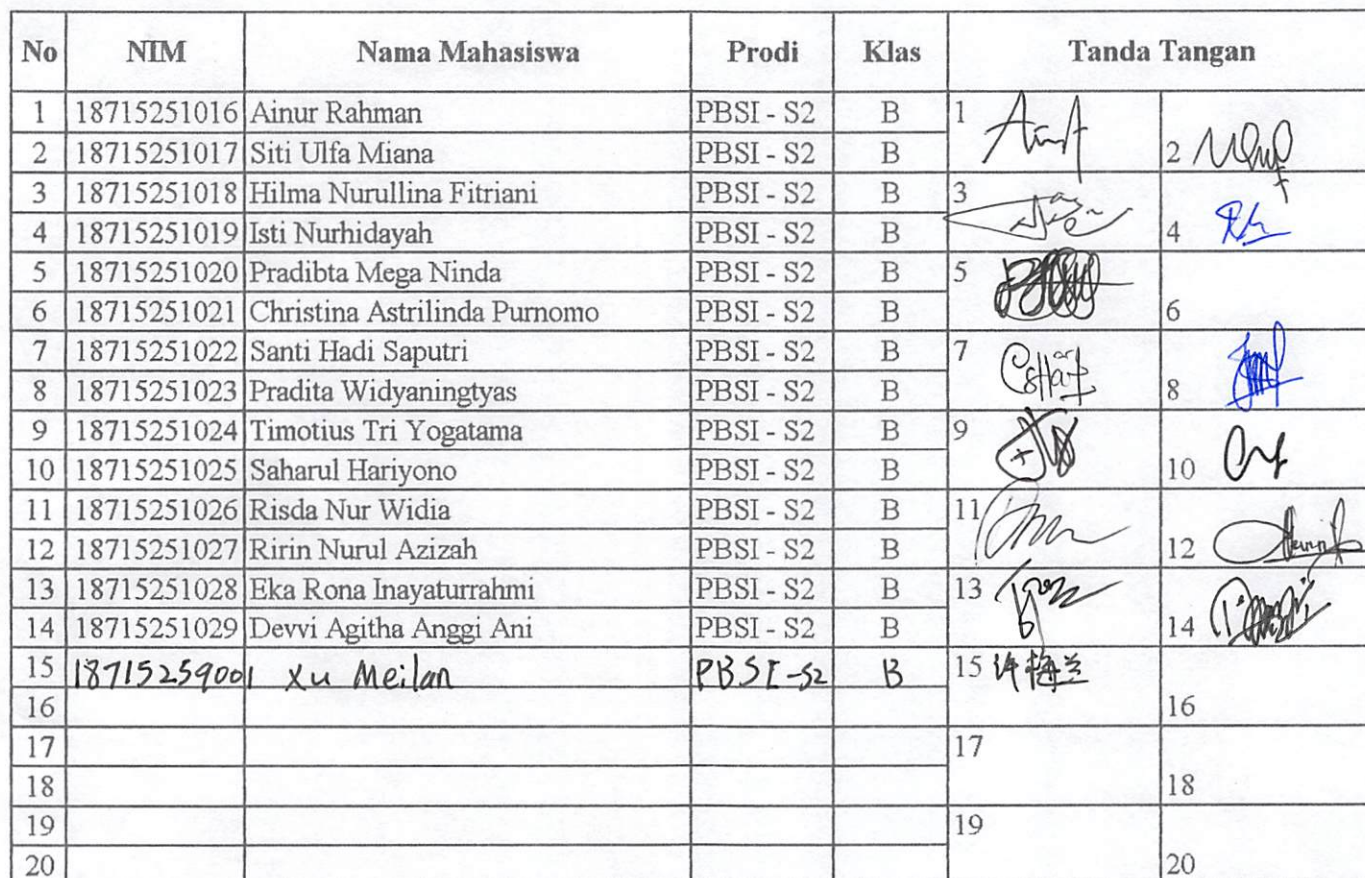 No NIM Nama Mahasiswa Prodi Klas Tanda Tangan
1 18715251016 Ainur Rahman PBSI - S2 B 1
2 18715251017 Siti Ulfa Miana PBSI - S2 B 2
3 18715251018 Hilma Nurullina Fitriani PBSI - S2 B 3
4 18715251019 Isti Nurhidayah PBSI - S2 B 4
5 18715251020 Pradibta Mega Ninda PBSI - S2 B 5
6 18715251021 Christina Astrilinda Purnomo PBSI - S2 B 6
7 18715251022 Santi Hadi Saputri PBSI - S2 B 7
8 18715251023 Pradita Widyaningtyas PBSI - S2 B 8
9 18715251024 Timotius Tri Yogatama PBSI - S2 B 9
10 18715251025 Saharul Hariyono PBSI - S2 B 10
11 18715251026 Risda Nur Widia PBSI - S2 B 11
12 18715251027 Ririn Nurul Azizah PBSI - S2 B 12
13 18715251028 Eka Rona Inayaturrahmi PBSI - S2 B 13
14 18715251029 Devvi Agitha Anggi Ani PBSI - S2 B 14
15 18715259001 Xu Meilan PBSI-S2 B 15 许梅兰
16 16
17 17
18 18
19 19
20 20